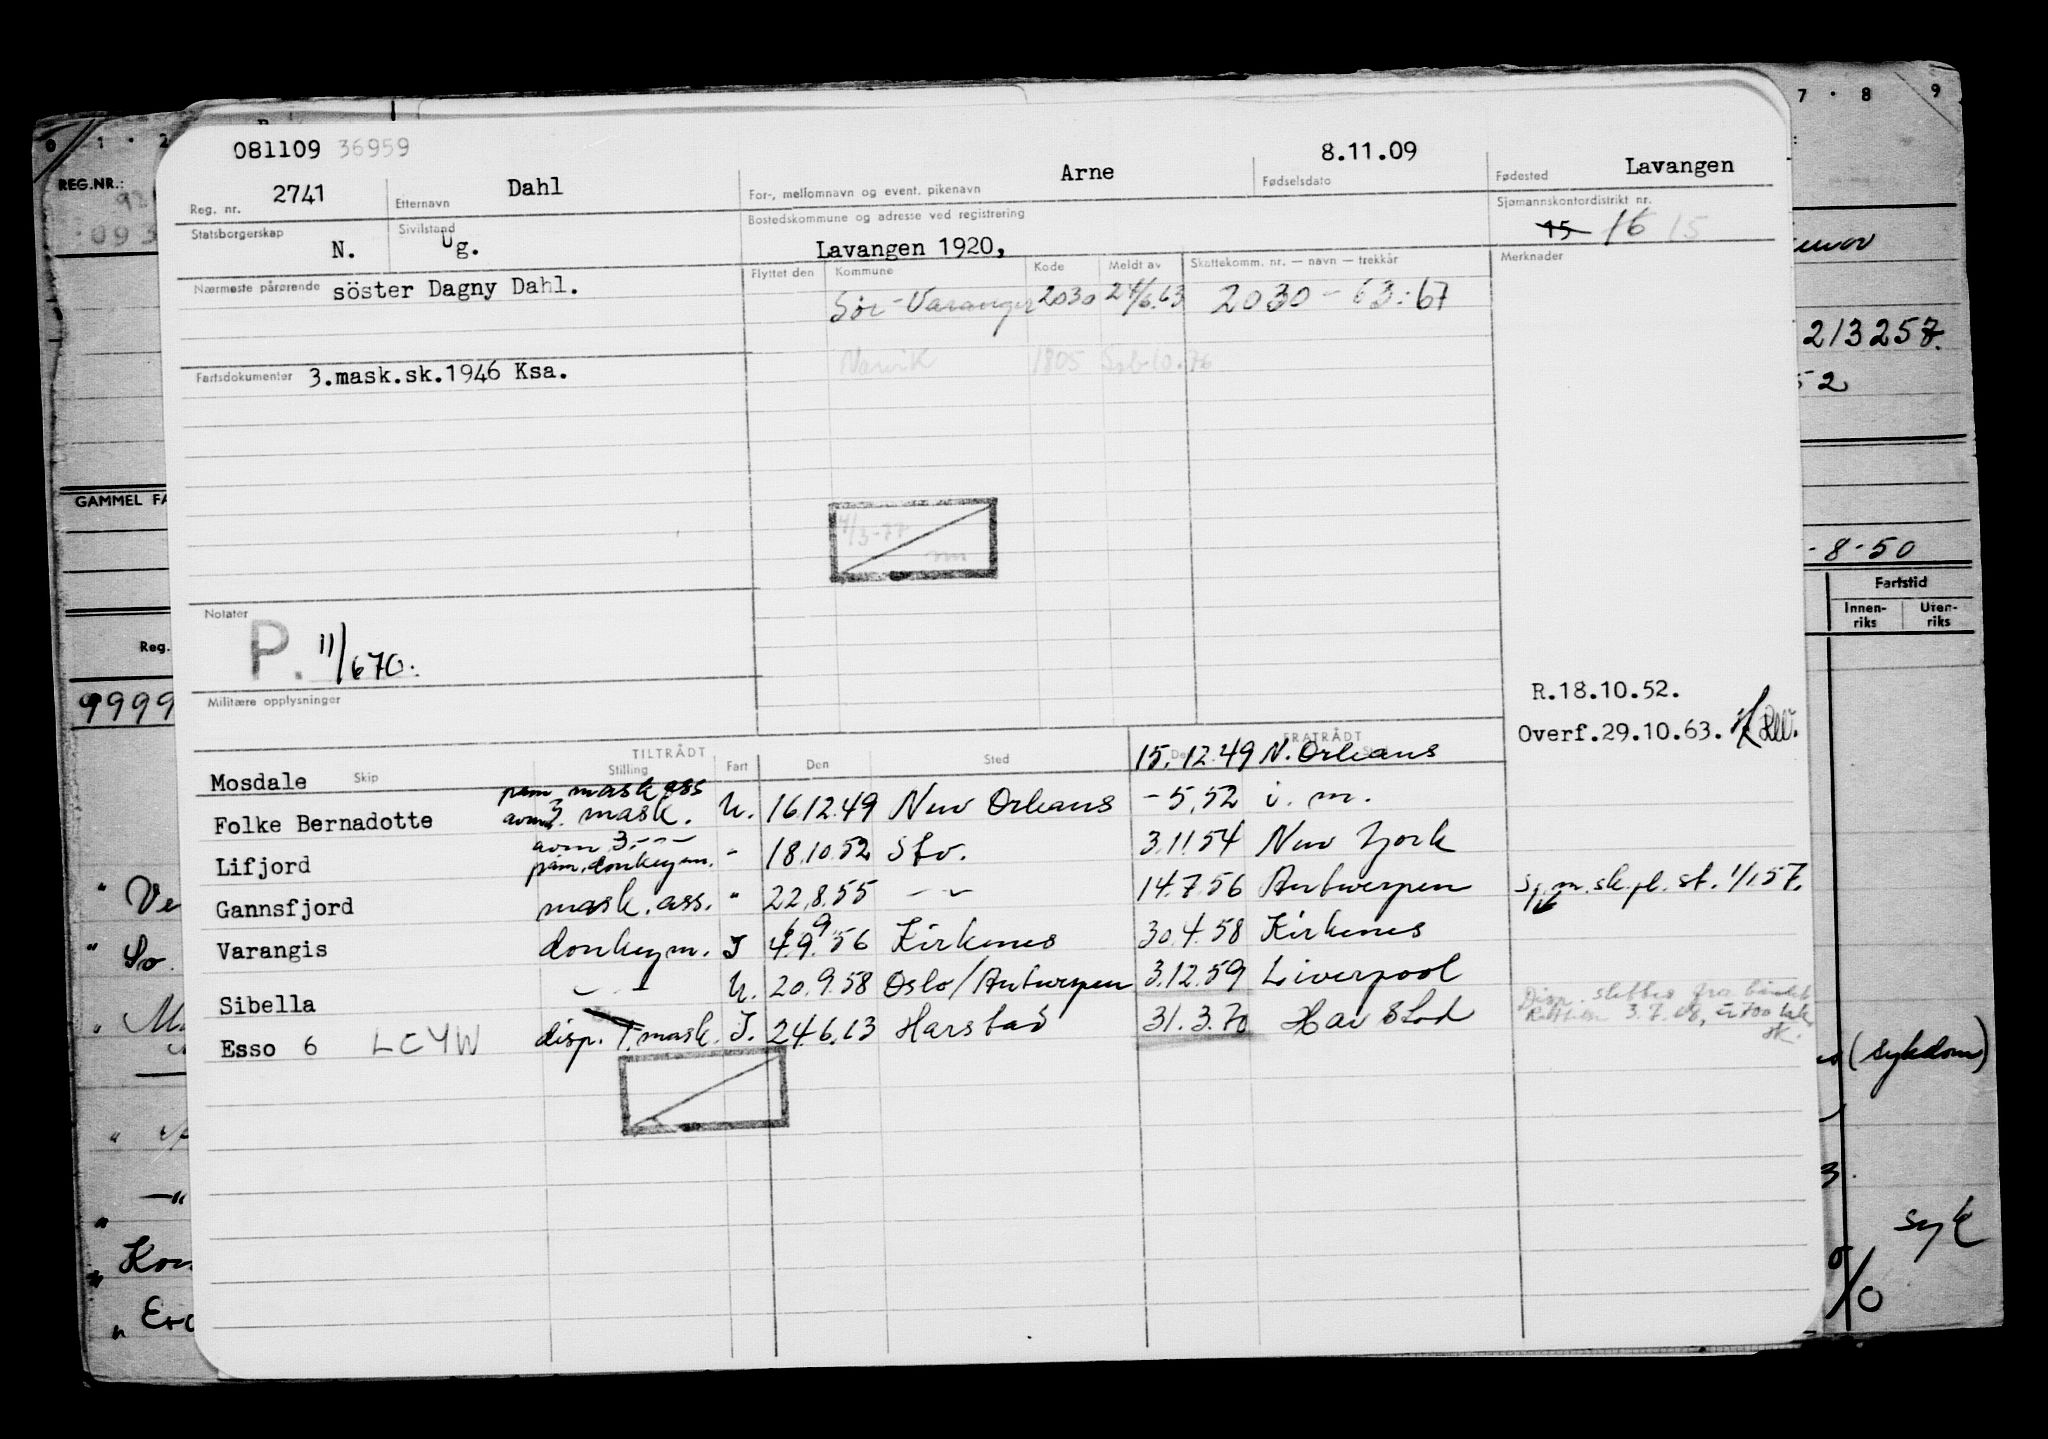 7 · 8 9
0 1 · 2
REG.NR.:
081109 36959
2741 Dahl Arne 8.11.09 Lavangen
Reg. nr. Etternavn For-, mellomnavn og event. pikenavn Fødselsdato Fødested
Statsborgerskap Sivilstand Bostedskommune og adresse ved registrering Sjømannskontordistrikt nr.
N. Ug. Lavangen 1920, 15 16 15
Flyttet den Kommune Kode Meldt av Skattekomm. nr. — navn — trekkår Merknader
Nærmeste pårørende söster Dagny Dahl.
Sør-Varanger 2030 24/6.63 2030 - 63:67
213257.
Narvik 1805
52
Fartsdokumenter 3.mask.sk.1946 Ksa.
GAMMEL FA
-8-50
Fartstid
Innen-riks Uten-riks
Notater
P. 11/670.
Reg.
Militære opplysninger
9999
R.18.10.52.
Overf.29.10.63.
TILTRÅDT FRATRÅDT
Skip Stilling Fart Den Sted
Mosdale 15.12.49 N. Orleans
Folke Bernadotte påm mask ass avm 3. mask. U. 16.12.49 New Orleans -5.52 i. m.
Lifjord avm 3.--- påm. donkeym. - 18.10.52 Stv. 3.11.54 New York
Gannsfjord mask. ass. " 22.8.55 - - 14.7.56 Antwerpen Sj.m.sk.pl. st. 1/1.57.
Varangis donkeym. I 4.9.56 Kirkenes 30.4.58 Kirkenes
Sibella - - U. 20.9.58 Oslo/Antwerpen 3.12.59 Liverpool
Esso 6 LCYW disp. 1. mask. I. 24.6.63 Harstad 31.3.70 Harstad
(sykdom)
syk
" Kon